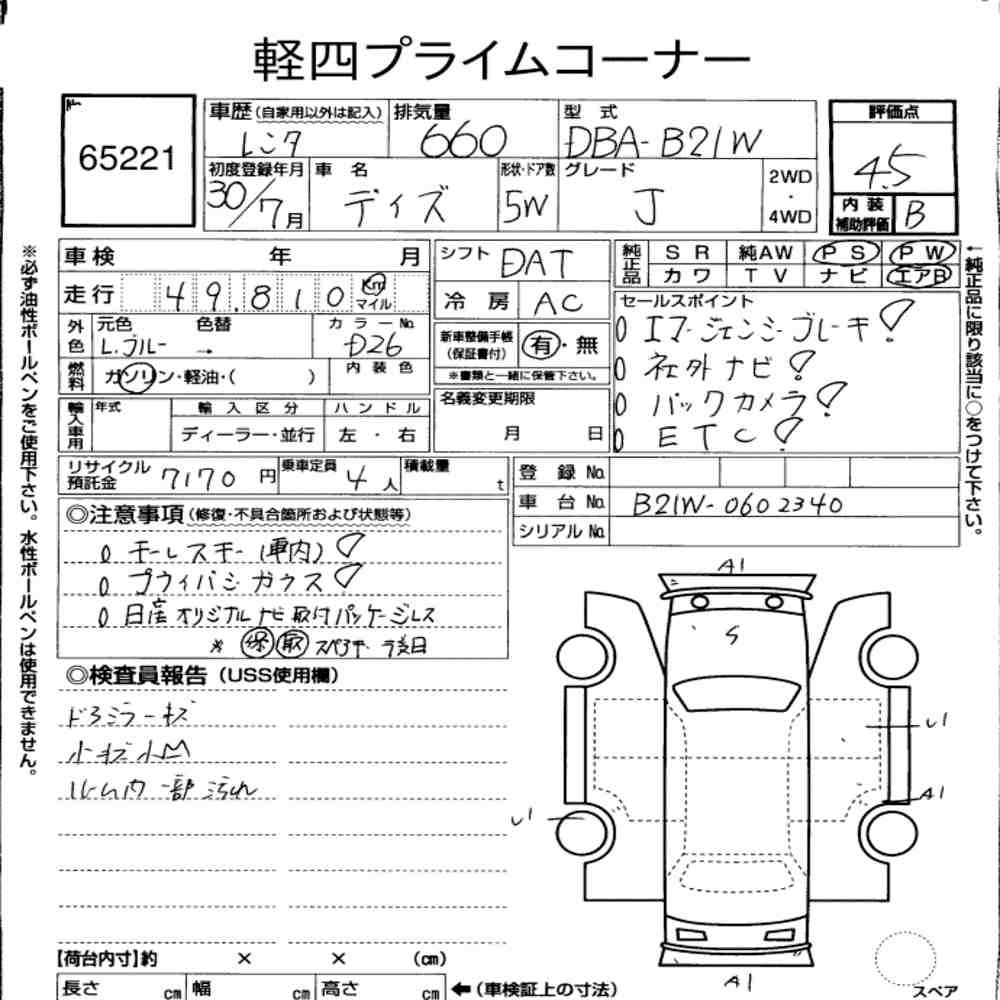 軽四プライムコーナー
65221
車歴(自家用以外は記入) 排気量 型式 評価点
レンタ 660 DBA-B21W 4.5
初度登録年月 車名 形状・ドア数 グレード 2WD・4WD 内装補助評価
30/7月 デイズ 5W J B
車検 年 月 シフト DAT 純正品 SR 純AW PS PW
走行 49,810 Km マイル カワ TV ナビ エアB
冷房 AC
セールスポイント
外色 元色 色替 カラーNo.
L.ブルー → D26
新車整備手帳(保証書付) 有・無
※書類と一緒に保管下さい。
エマージェンシーブレーキ!
社外ナビ!
バックカメラ!
ETC!
燃料 ガソリン・軽油・( ) 内装色
輸入車用 年式 輸入区分 ハンドル
ディーラー・並行 左・右
名義変更期限
月 日
リサイクル預託金 7170円 乗車定員 4人 積載量 t
登録No.
車台No. B21W-0602340
シリアルNo.
◎注意事項(修復・不具合箇所および状態等)
キーレスキー(車内)!
プライバシーガラス!
日産オリジナルナビ取付パッケージレス
※ 保 取 スペアキー
◎検査員報告(USS使用欄)
ドアミラーキズ
小キズ小凹
ルーム内一部汚れ
A1
S
U1
A1
U1
A1
【荷台内寸】約 × × (cm)
長さ cm 幅 cm 高さ cm ←(車検証上の寸法)
スペア
※必ず油性ボールペンをご使用下さい。水性ボールペンは使用できません。
←純正品に限り該当に○をつけて下さい。